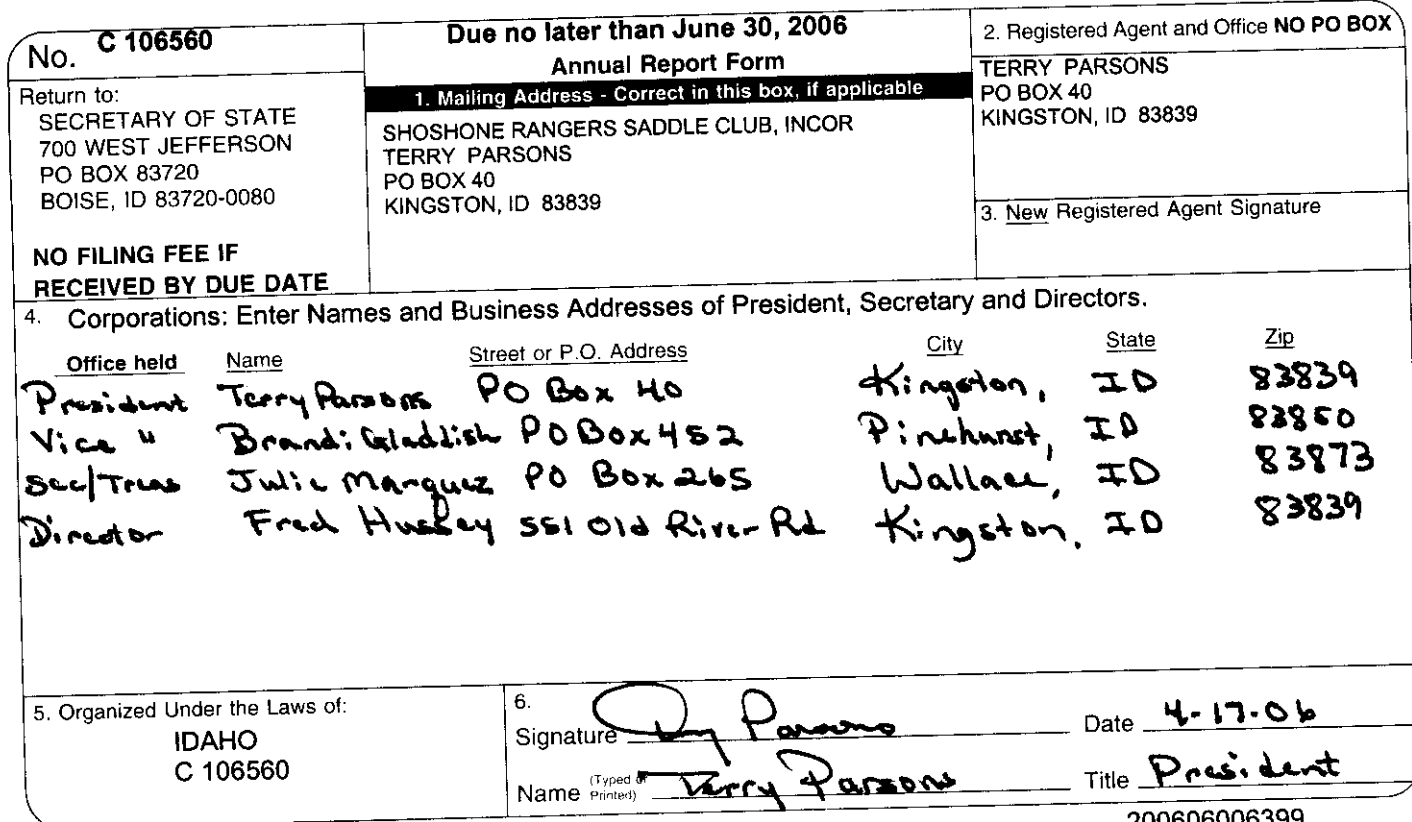 No. C 106560
Return to:
SECRETARY OF STATE
700 WEST JEFFERSON
PO BOX 83720
BOISE, ID 83720-0080
NO FILING FEE IF
RECEIVED BY DUE DATE
Due no later than June 30, 2006
Annual Report Form
1. Mailing Address - Correct in this box, if applicable
SHOSHONE RANGERS SADDLE CLUB, INCOR
TERRY PARSONS
PO BOX 40
KINGSTON, ID 83839
2. Registered Agent and Office NO PO BOX
TERRY PARSONS
PO BOX 40
KINGSTON, ID 83839
3. New Registered Agent Signature
4. Corporations: Enter Names and Business Addresses of President, Secretary and Directors.
Office held Name Street or P.O. Address City State Zip
President Terry Parsons PO Box 40 Kingston, ID 83839
Vice " Brandi Gladdish PO Box 452 Pinehurst, ID 83850
Sec/Treas Julie Marquez PO Box 265 Wallace, ID 83873
Director Fred Hussey 551 Old River Rd Kingston, ID 83839
5. Organized Under the Laws of:
IDAHO
C 106560
6.
Signature Terry Parsons Date 4-17-06
Name (Typed or Printed) Terry Parsons Title President
200606006399